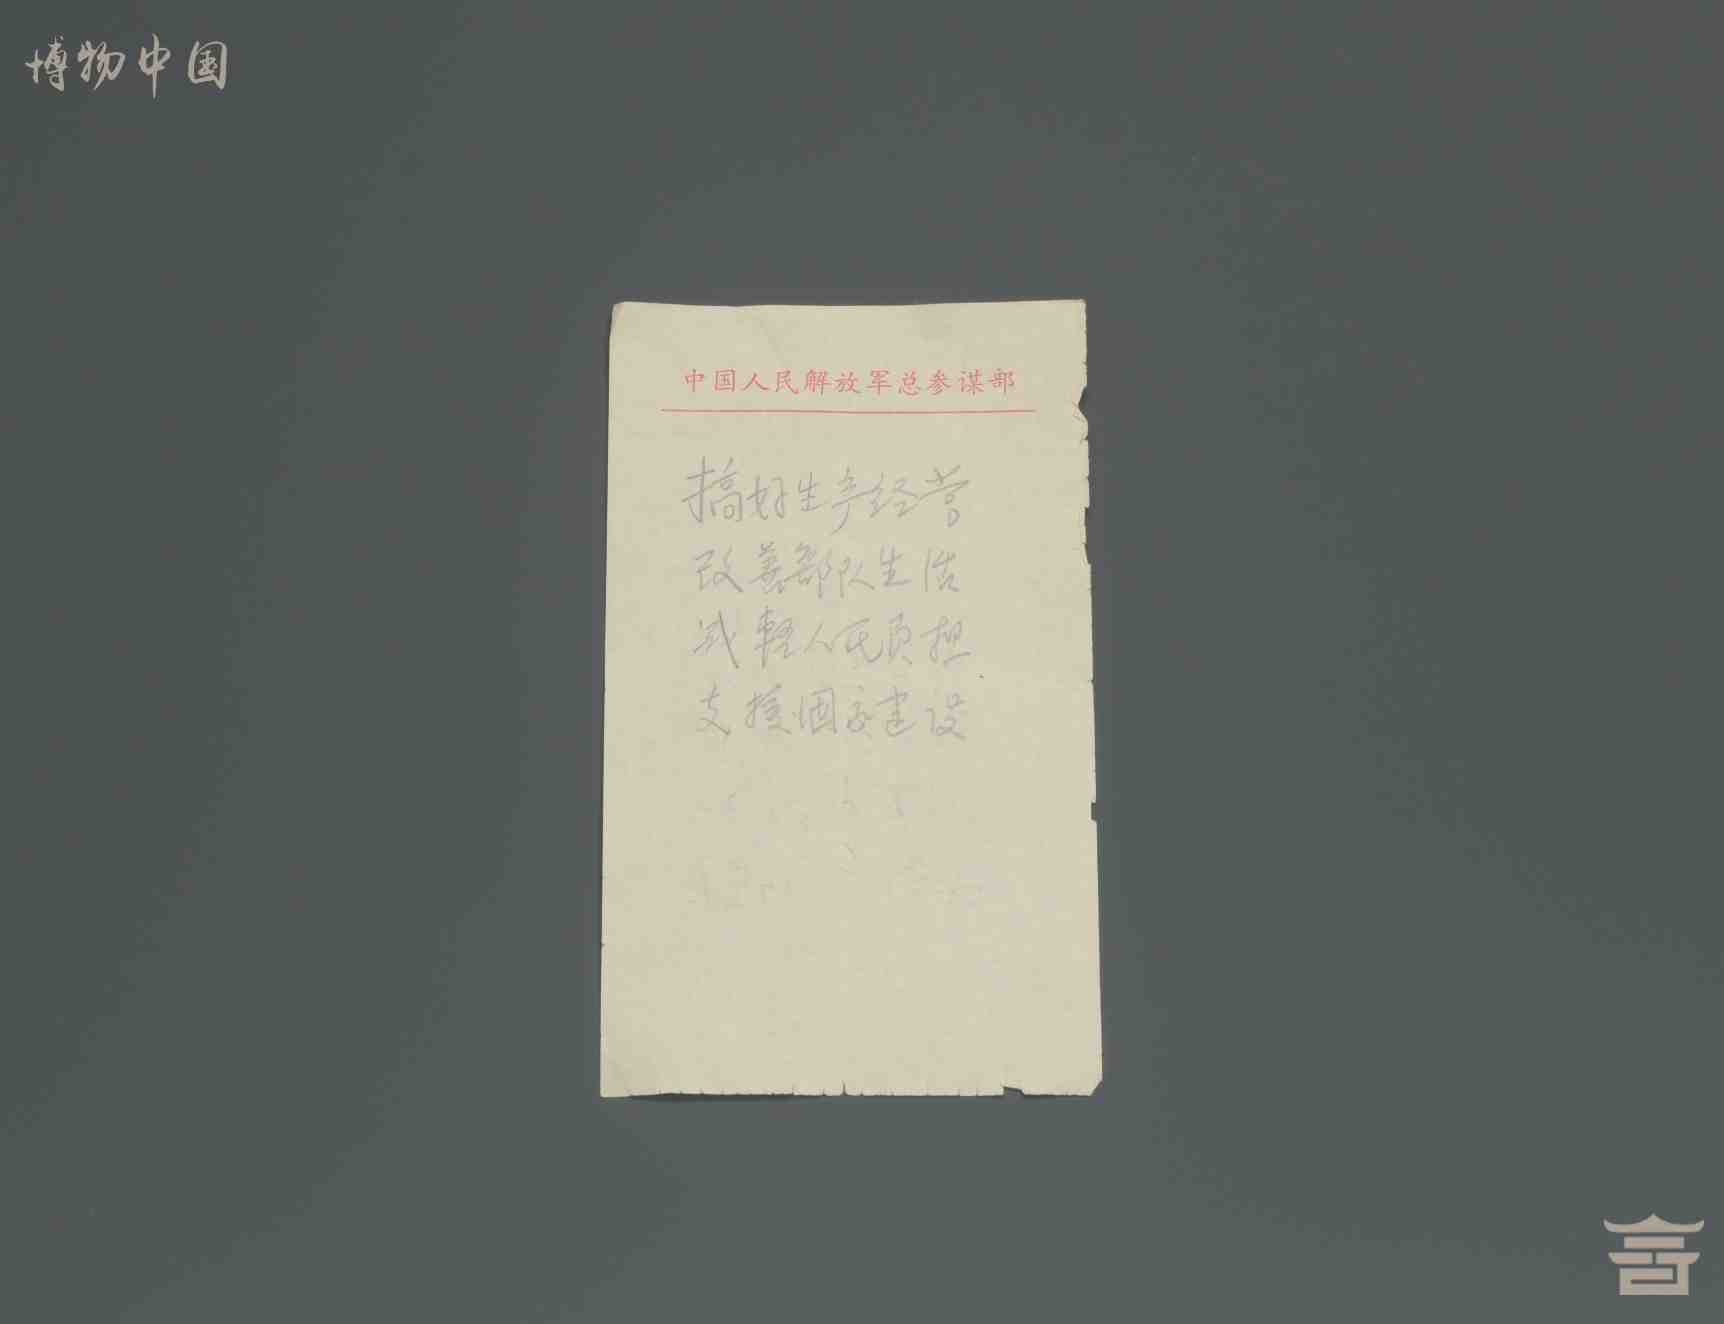 博物中国
中国人民解放军总参谋部
搞好生产经营
改善部队生活
减轻人民负担
支援国家建设